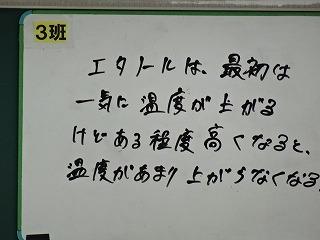 3班
エタノールは、最初は
一気に温度が上がる
けどある程度高くなると、
温度があまり上がらなくなる。